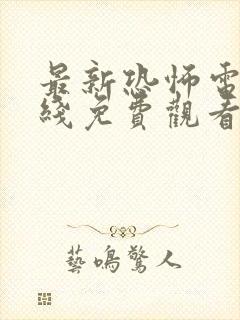 最新恐怖電
綫免費觀看
藝鳴驚人